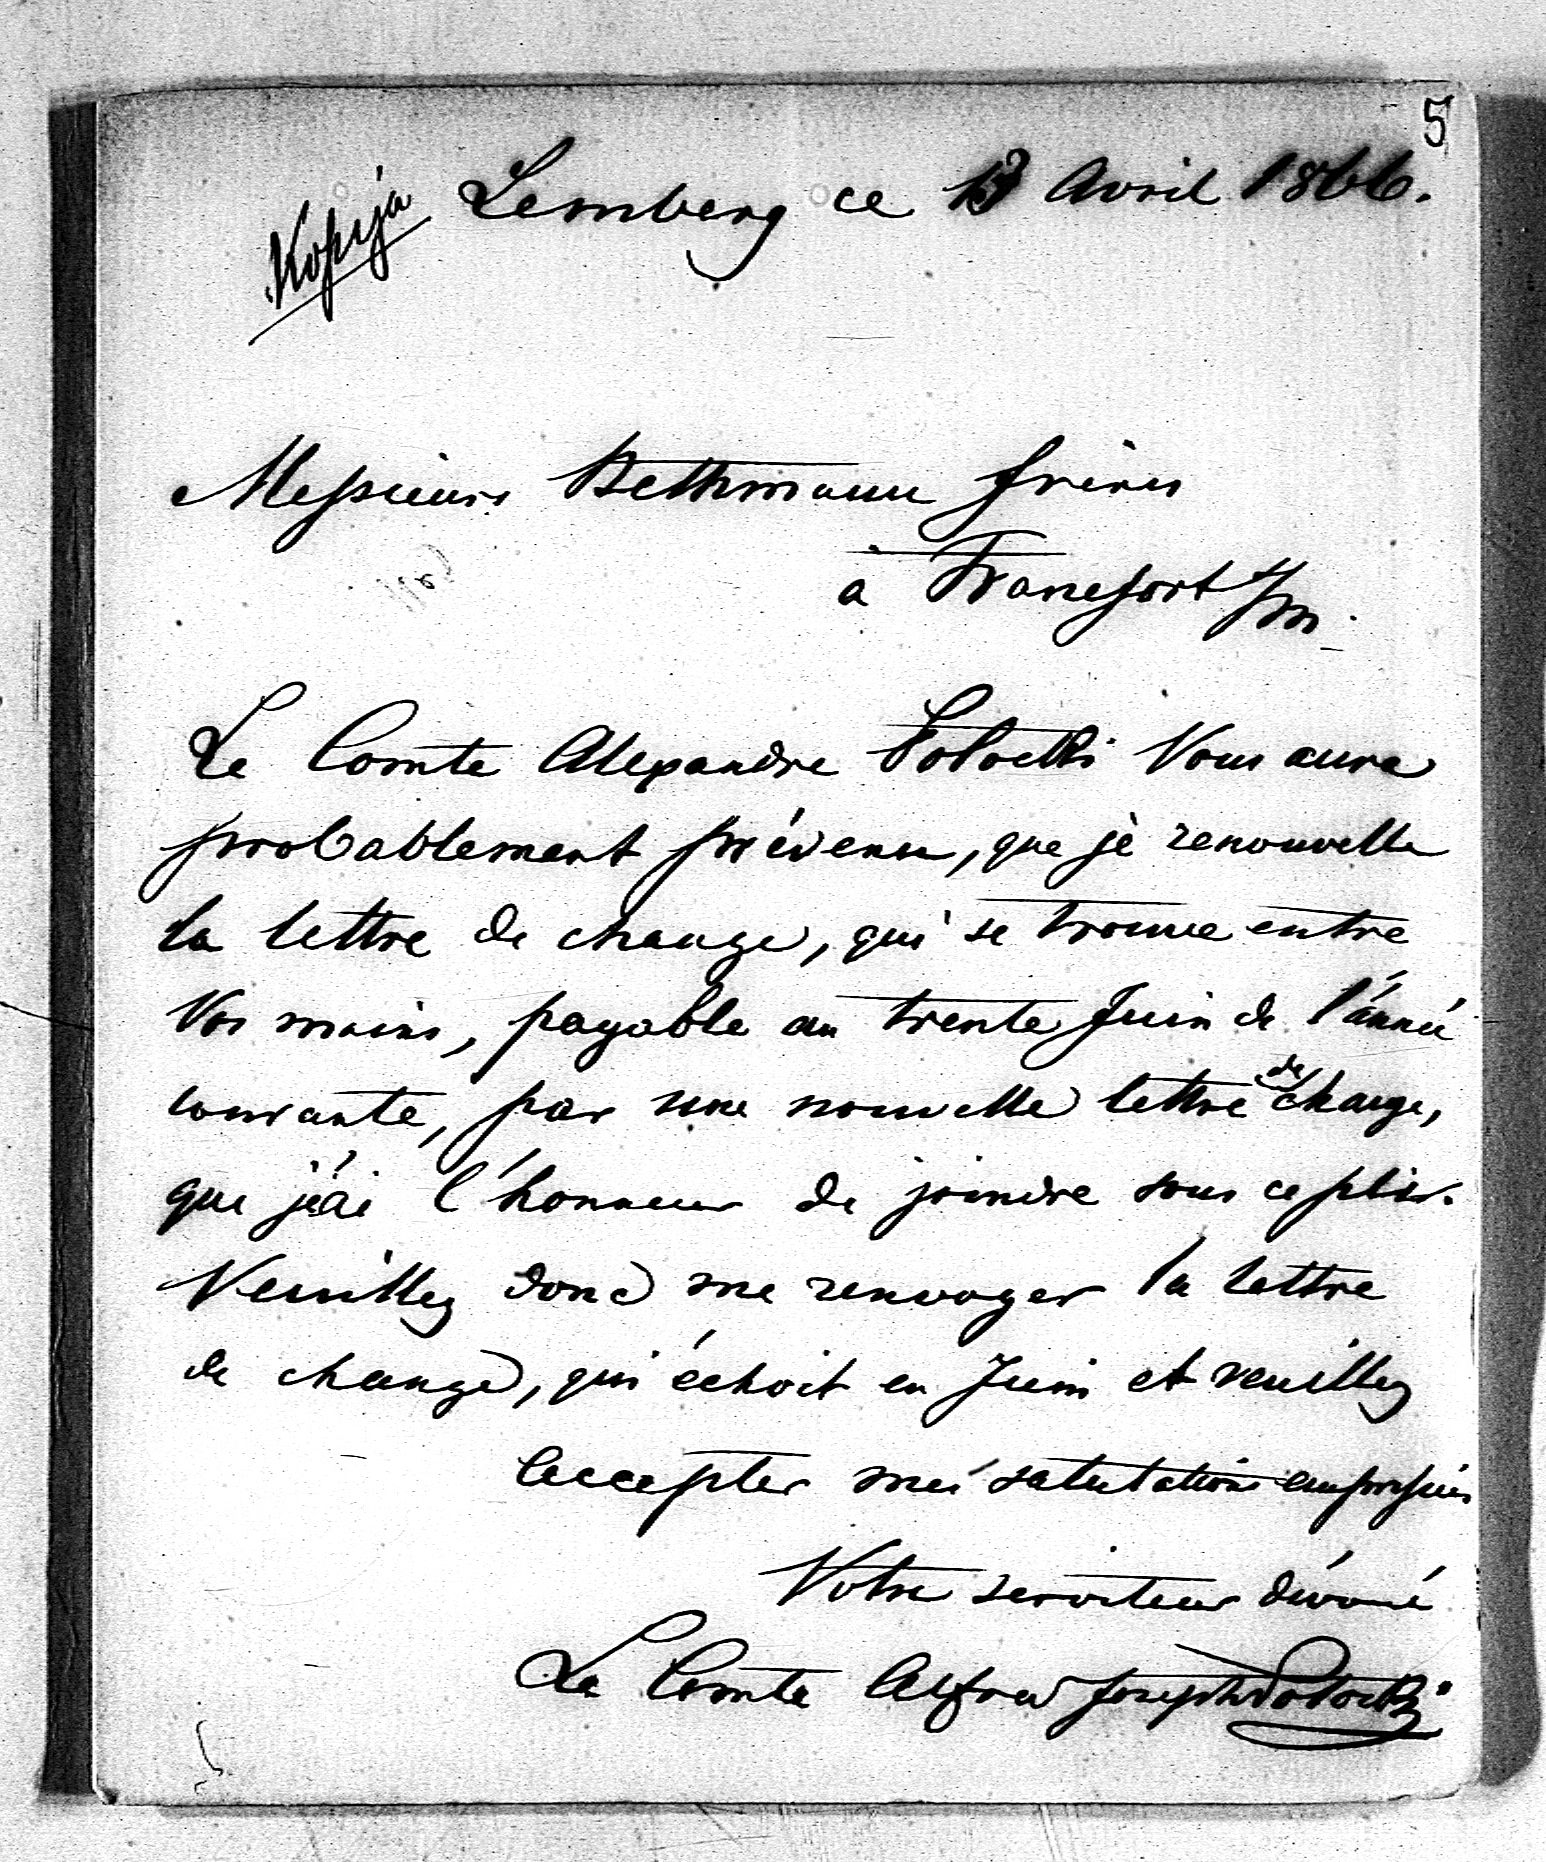 5
Kopija Lemberg ce 13 Avril 1866.
Messieurs Bethmann frères
à Francfort s/m.
Le Comte Alexandre Potocki Vous aura
probablement prévenu, que je renouvelle
la lettre de change, qui se trouve entre
Vos mains, payable au trente Juin de l'année
courante, par une nouvelle lettre de change,
que j'ai l'honneur de joindre sous ce plis.
Veuillez donc me renvoyer la lettre
de change, qui échoit en Juin et veuillez
accepter mes salutations empressées
Votre serviteur dévoué
Le Comte Alfred Joseph Potocki